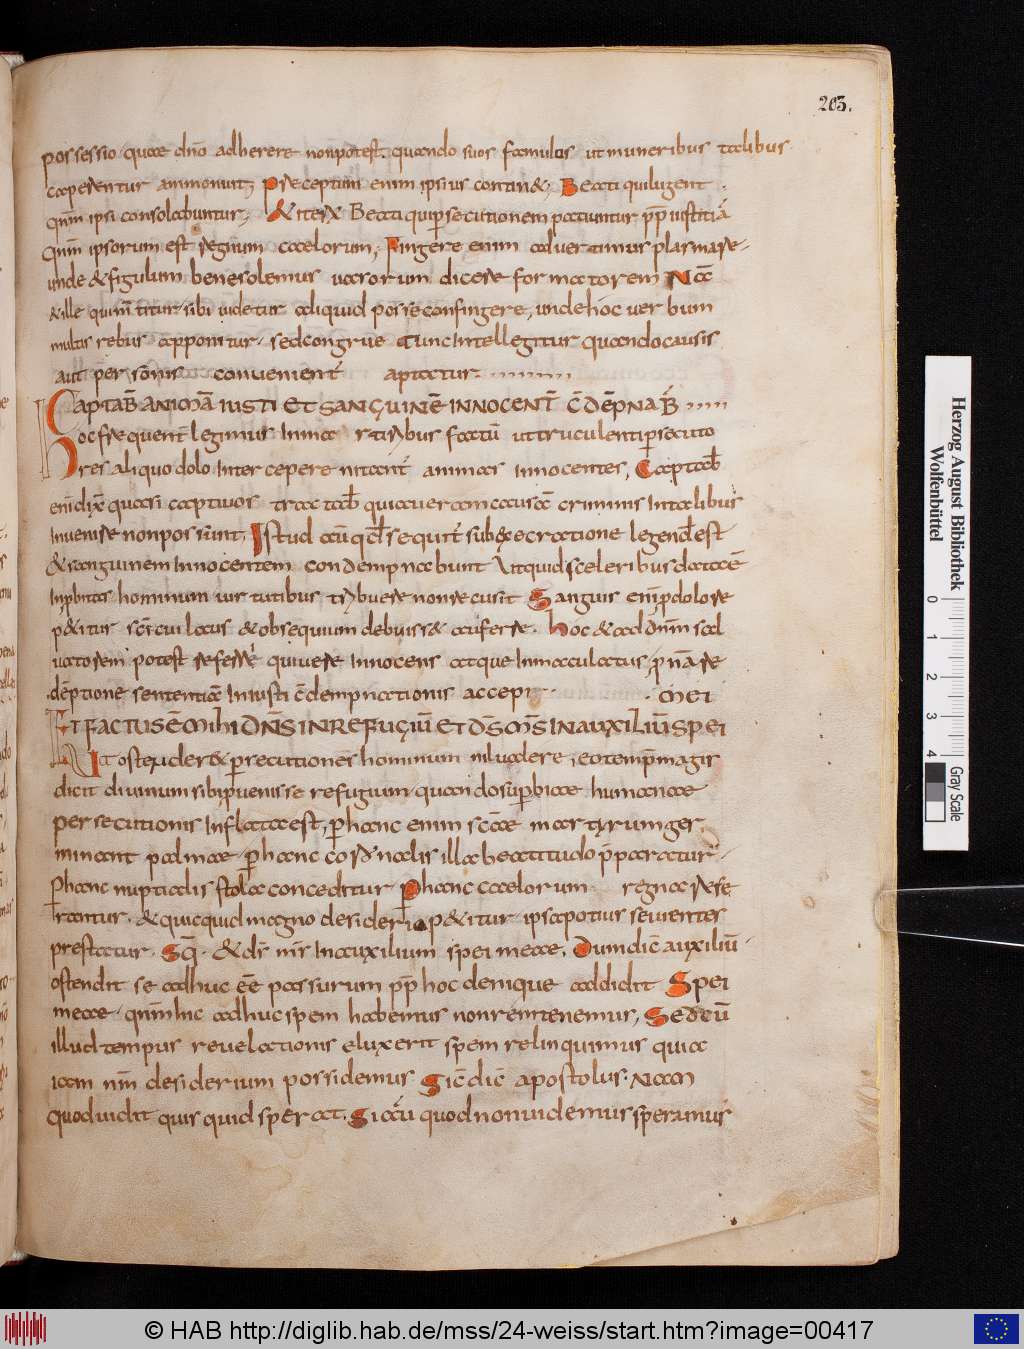 203.
possessio quae dn̄o adherere non potest. quando suos famulos ut muneribus talibus
caperentur ammonuit; Preceptum enim ipsius contin&; Beati qui lugent
qnm̄ ipsi consolabuntur; & iterū Beati qui ꝑsecutionem patiuntur ꝓp iustitiā
qnm̄ ipsorum est regnum caelorum; Fingere enim advertimus plasmare
unde & figulum bene solemus vasorum dicere formatorem Nā
& ille qui mentitur sibi videtur aliquid posse confingere, unde hoc verbum
multis rebus apponitur. sed congrue tunc intellegitur quando causis
aut personis convenient̄ aptatur
CAPTAB̄ ANIMĀ IUSTI ET SANGUINĒ INNOCENT̄ C̄DĒPNAB̄
Hoc frequent̄ legimus in martiribus factū ut truculenti ꝑsecuto
res aliquo dolo intercepere nitant̄ animas innocentes, Captab̄
eni dix̄ quasi captivos tractab̄ quia veram causā criminis in talibus
invenire non possunt. Istud aū qd̄ sequit̄ sub exsecratione legend̄ est
& sanguinem innocentem condempnabunt Ut quid sceleribus datā ē
inp̄bitas hominum virtutibus tribuere non recusit Sanguis eni ꝓ dolore
p&itur sc̄i cui locus & obsequium debuiss& auferre. Hoc & ad dn̄m sal
vatorem potest referre qui vere innocens atque inmaculatus, ꝓ nr̄a re
dēptione sententiā iniusti c̄dempnationis accepit
ET FACTUS Ē MIHI DNS IN REFUGIŪ ET DS̄ MS̄ IN AUXILIŪ SPEI MEI
Ut ostender& ꝑsecutiones hominum nil vadere, eo temp̄ magis
dicit divinum sibi ꝓvenisse refugium quando suꝑbiae humanae
persecutionis inflata est, ꝑ hanc enim sc̄ae martyrum ger
minant palmae. ꝑ hanc cordinalis illa beatitudo p̄paratur
ꝑ hanc nuptialis stola conceditur ꝑ hanc caelorum regna rese
rantur. & quicquid magno desiderio p&itur ipsa potius sevientes
prestatur. Sq̄. & ds̄ ms̄ in auxilium spei meae. Dum dic̄ auxiliū
ostendit se adhuc ēē passurum ꝓp hoc denique addidit Spei
meae. qnm̄ hic adhuc spem habemus non rem tenemus, Sed cū
illud tempus revelationis eluxerit spem relinquimus quia
iam rm̄ desiderium possidemus Sic̄ dic̄ apostolus. Nam
quod vidit quis quid sperat. Si aū quod non videmus speramus
Herzog August Bibliothek
Wolfenbüttel
0 1 2 3 4
Gray Scale
© HAB http://diglib.hab.de/mss/24-weiss/start.htm?image=00417